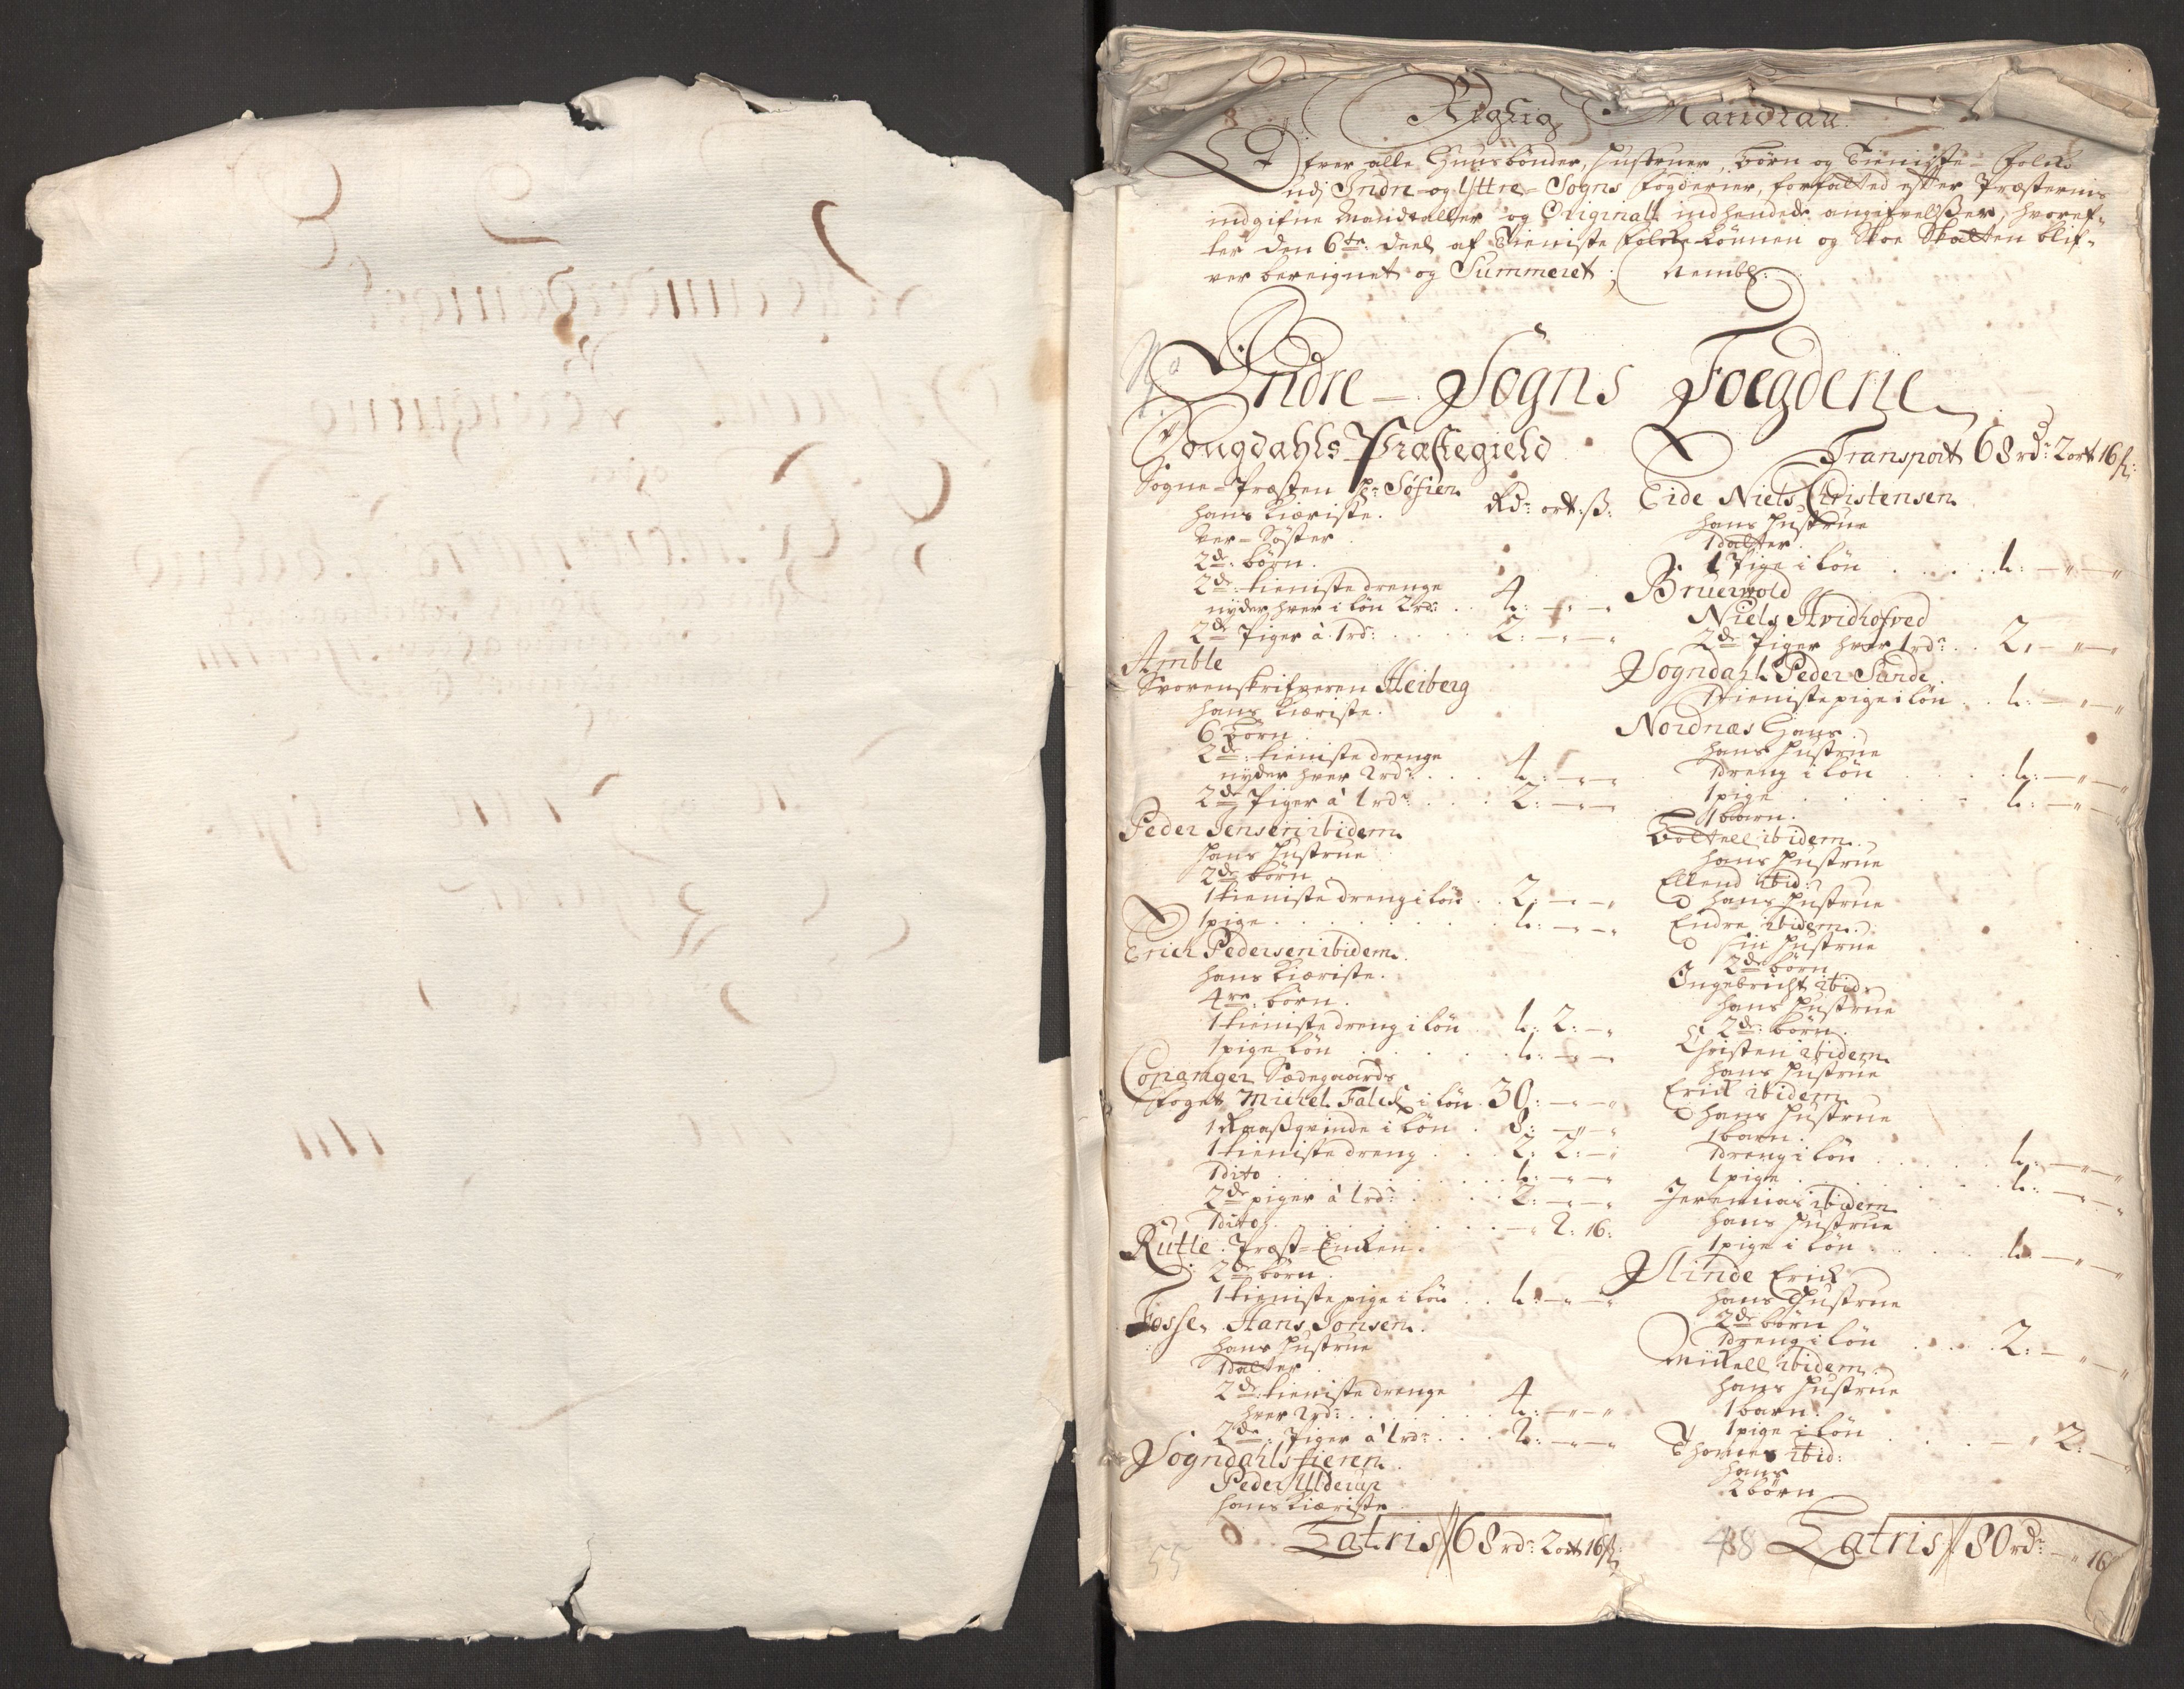 Rigtig Mandtall
Ofver alle Huusbønder, Hustruer, Børn og Tieniste-Folck
udj Indre- og Yttre-Sogns Fogderier, forfatted efter Præsternis
indgifne Mandtaller og Originall indhendede angifvelsßer, hvoref-
ter den 6te deel af Tieniste Folckes Lønnen og Skoe Skatten blif-
ver beregnet og Summeret; Nembl:
Indre-Sogns Foegderie
Sougdahls Præstegield
Sogne-Præsten Hr Søfren Rdr: ort: ß:
hans Kieriste.
Ver-Søster
2de børn.
2de tieniste drenge
nyder hver i løn 2rd: 4: - -
2de Piger à 1rd: 2: - -
Amble
Sorenskrifveren Heiberg
hans Kieriste.
6 Børn
2de tieniste drenge
nyder hver 2rdr 4: - -
2de Piger à 1rdr 2: - -
Peder Jensen ibidem
hans Hustrue
2de børn
1 tieniste dreng i løn 2: - -
1 pige 1: - -
Erich Pedersen ibidem
hans Kieriste.
4re børn.
1 tieniste dreng i løn 1: 2: -
1 pige løn 1: - -
Copanger Sædegaards
Foget Michel Falck i løn 30: - -
1 Raaßqvinde i løn 8: - -
1 tieniste dreng 2: 2: -
1 dito 1: - -
2de piger à 1rdr 2: - -
1 dito - 2: 16:
Rutle. Præst-Enken.
2de børn.
1 tieniste pige i løn 1: - -
Fosse, Hans Jonsen.
hans Hustrue
1 datter
2de tieniste drenge
hver 2rd: 4: - -
2de Piger à 1rdr 2: - -
Sogndahls fieren
Peder Ulderup
hans Kieriste
Latris // 68rdr 2ort 16ß
55
Transport 68rdr: 2ort 16ß:
Eide Niels Christensen
hans Hustrue
1 datter.
1 Pige i løn 1: - -
Bruervold
Niels Hvidhofved
2de Piger hver 1rdr 2, - -
Sogndahl Peder Sande
1 tieniste pige i løn 1: - -
Nordnæs Hans
hans Hustrue
1 dreng i løn 1: - -
1 pige 1: - -
1 barn.
Bottell ibidem
hans Hustrue
Ellend ibid:
hans Hustrue
Endre ibidem
sin Hustrue
2de børn
Ingebricht ibid
hans Hustrue
2de børn.
Christen ibidem
hans Hustrue
Erick ibidem
hans Hustrue
1 barn.
1 dreng i løn 1: - -
1 pige 1: - -
Jeremias ibidem
hans Hustrue
1 pige i løn 1: - -
Slinde Erick
hans Hustrue
2de børn
1 dreng i løn 2: - -
Mickell ibidem
hans Hustrue
1 barn.
1 pige i løn - 2: -
Thomes ibid:
hans
2 børn
488 Latris // 80rdr - 16